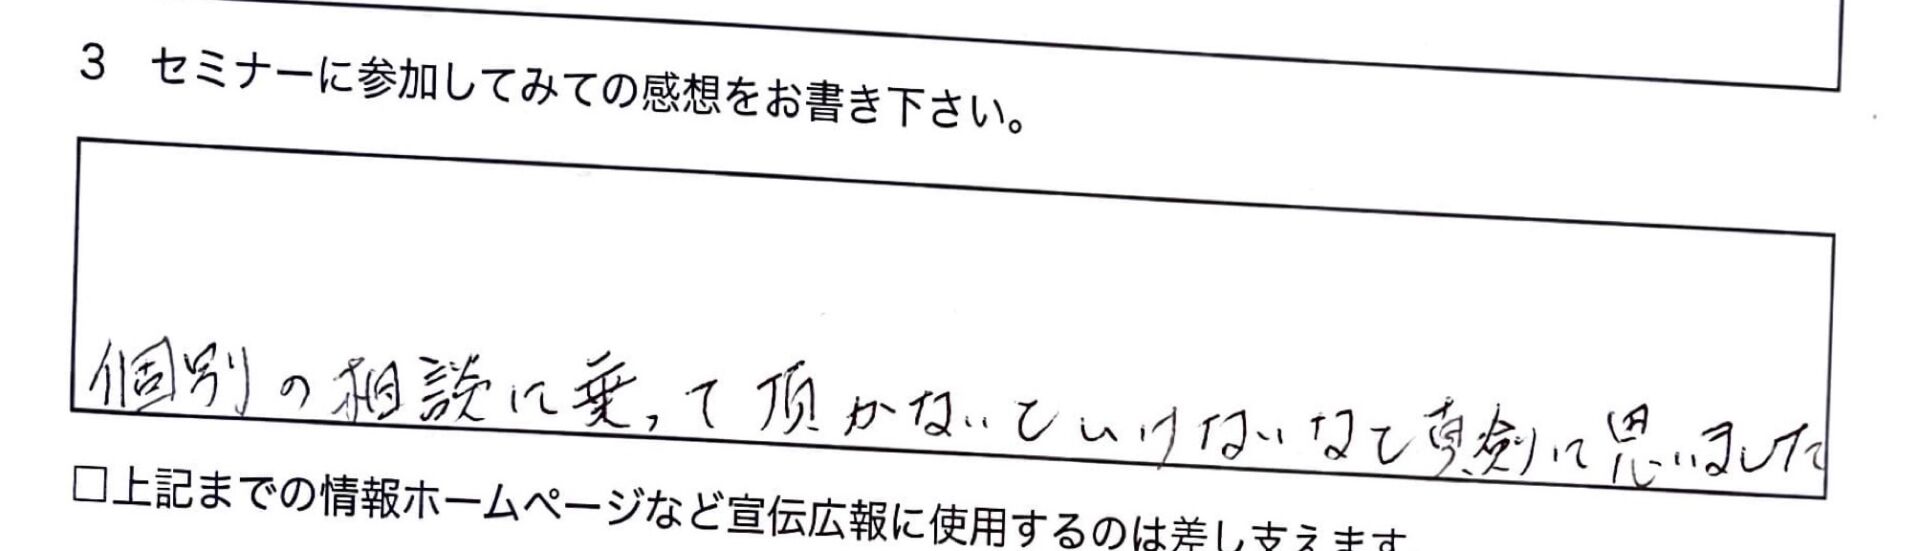 3 セミナーに参加してみての感想をお書き下さい。
個別の相談に乗って頂かないといけないなと真剣に思いました
□上記までの情報ホームページなど宣伝広報に使用するのは差し支えます